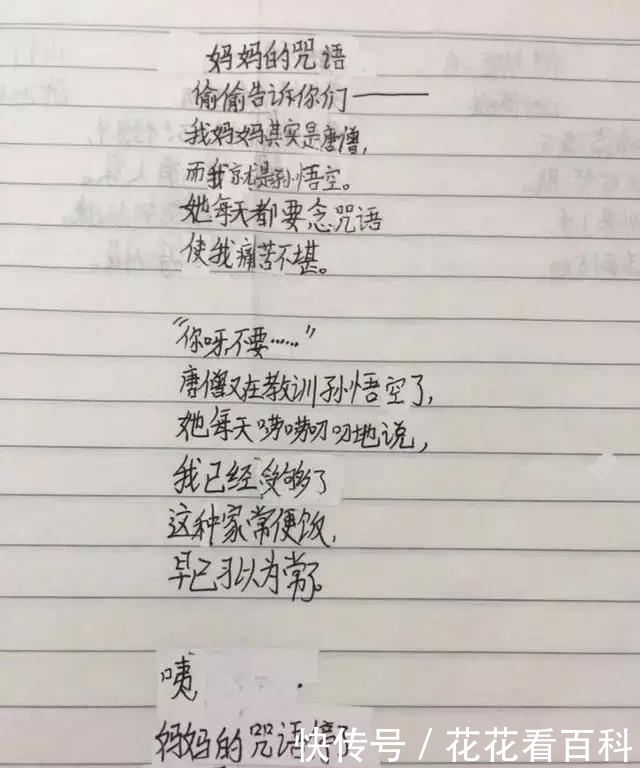 妈妈的咒语
偷偷告诉你们——
我妈妈其实是唐僧,
而我就是孙悟空。
她每天都要念咒语
使我痛苦不堪。
“你呀,不要……”
唐僧又在教训孙悟空了,
她每天唠唠叨叨地说,
我已经受够了
这种家常便饭,
早已习以为常了。
咦
妈妈的咒语停了
快传号 / 花花看百科